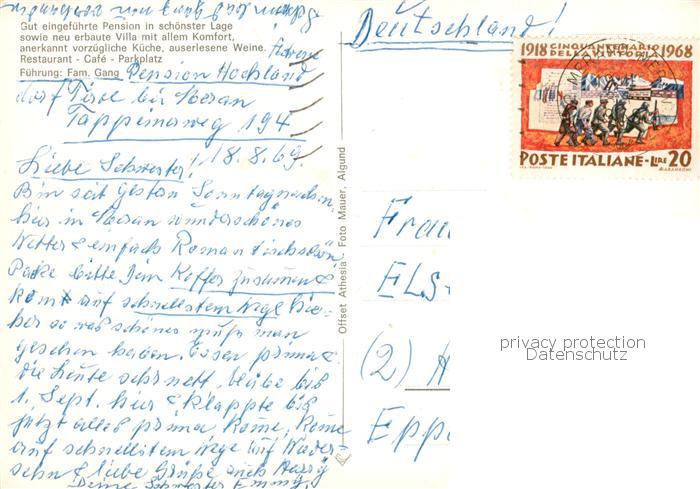 Gut eingeführte Pension in schönster Lage
sowie neu erbaute Villa mit allem Komfort,
anerkannt vorzügliche Küche, auserlesene Weine.
Restaurant - Café - Parkplatz
Führung: Fam. Gang
Adresse
Pension Hochland
dorf Tirol bei Meran
Tappeinerweg 194
18.8.69.
Liebe Schwester!
Bin seit gestern Sonntag
hier in Meran wunderschönes
Wetter & einfach Romantisch schön
Packe bitte Dein Koffer zusammen &
kom auf schnellstem Wege hie-
her so was schönes muß man
gesehen haben. Essen prima &
die Leute sehr nett, bleibe bis
1. Sept. hier & klappte bis
jetzt alles prima. Kome, Kome
auf schnellstem Wege auf Wieder-
sehn & liebe Grüße auch Harry
Deine Schwester Emmy
Offset Athesia - Foto Mauer, Algund
Deutschland!
1918 CINQUANTENARIO DELLA VITTORIA 1968
POSTE ITALIANE - LIRE 20
Frau
ELS
(2) H
Epp
privacy protection
Datenschutz